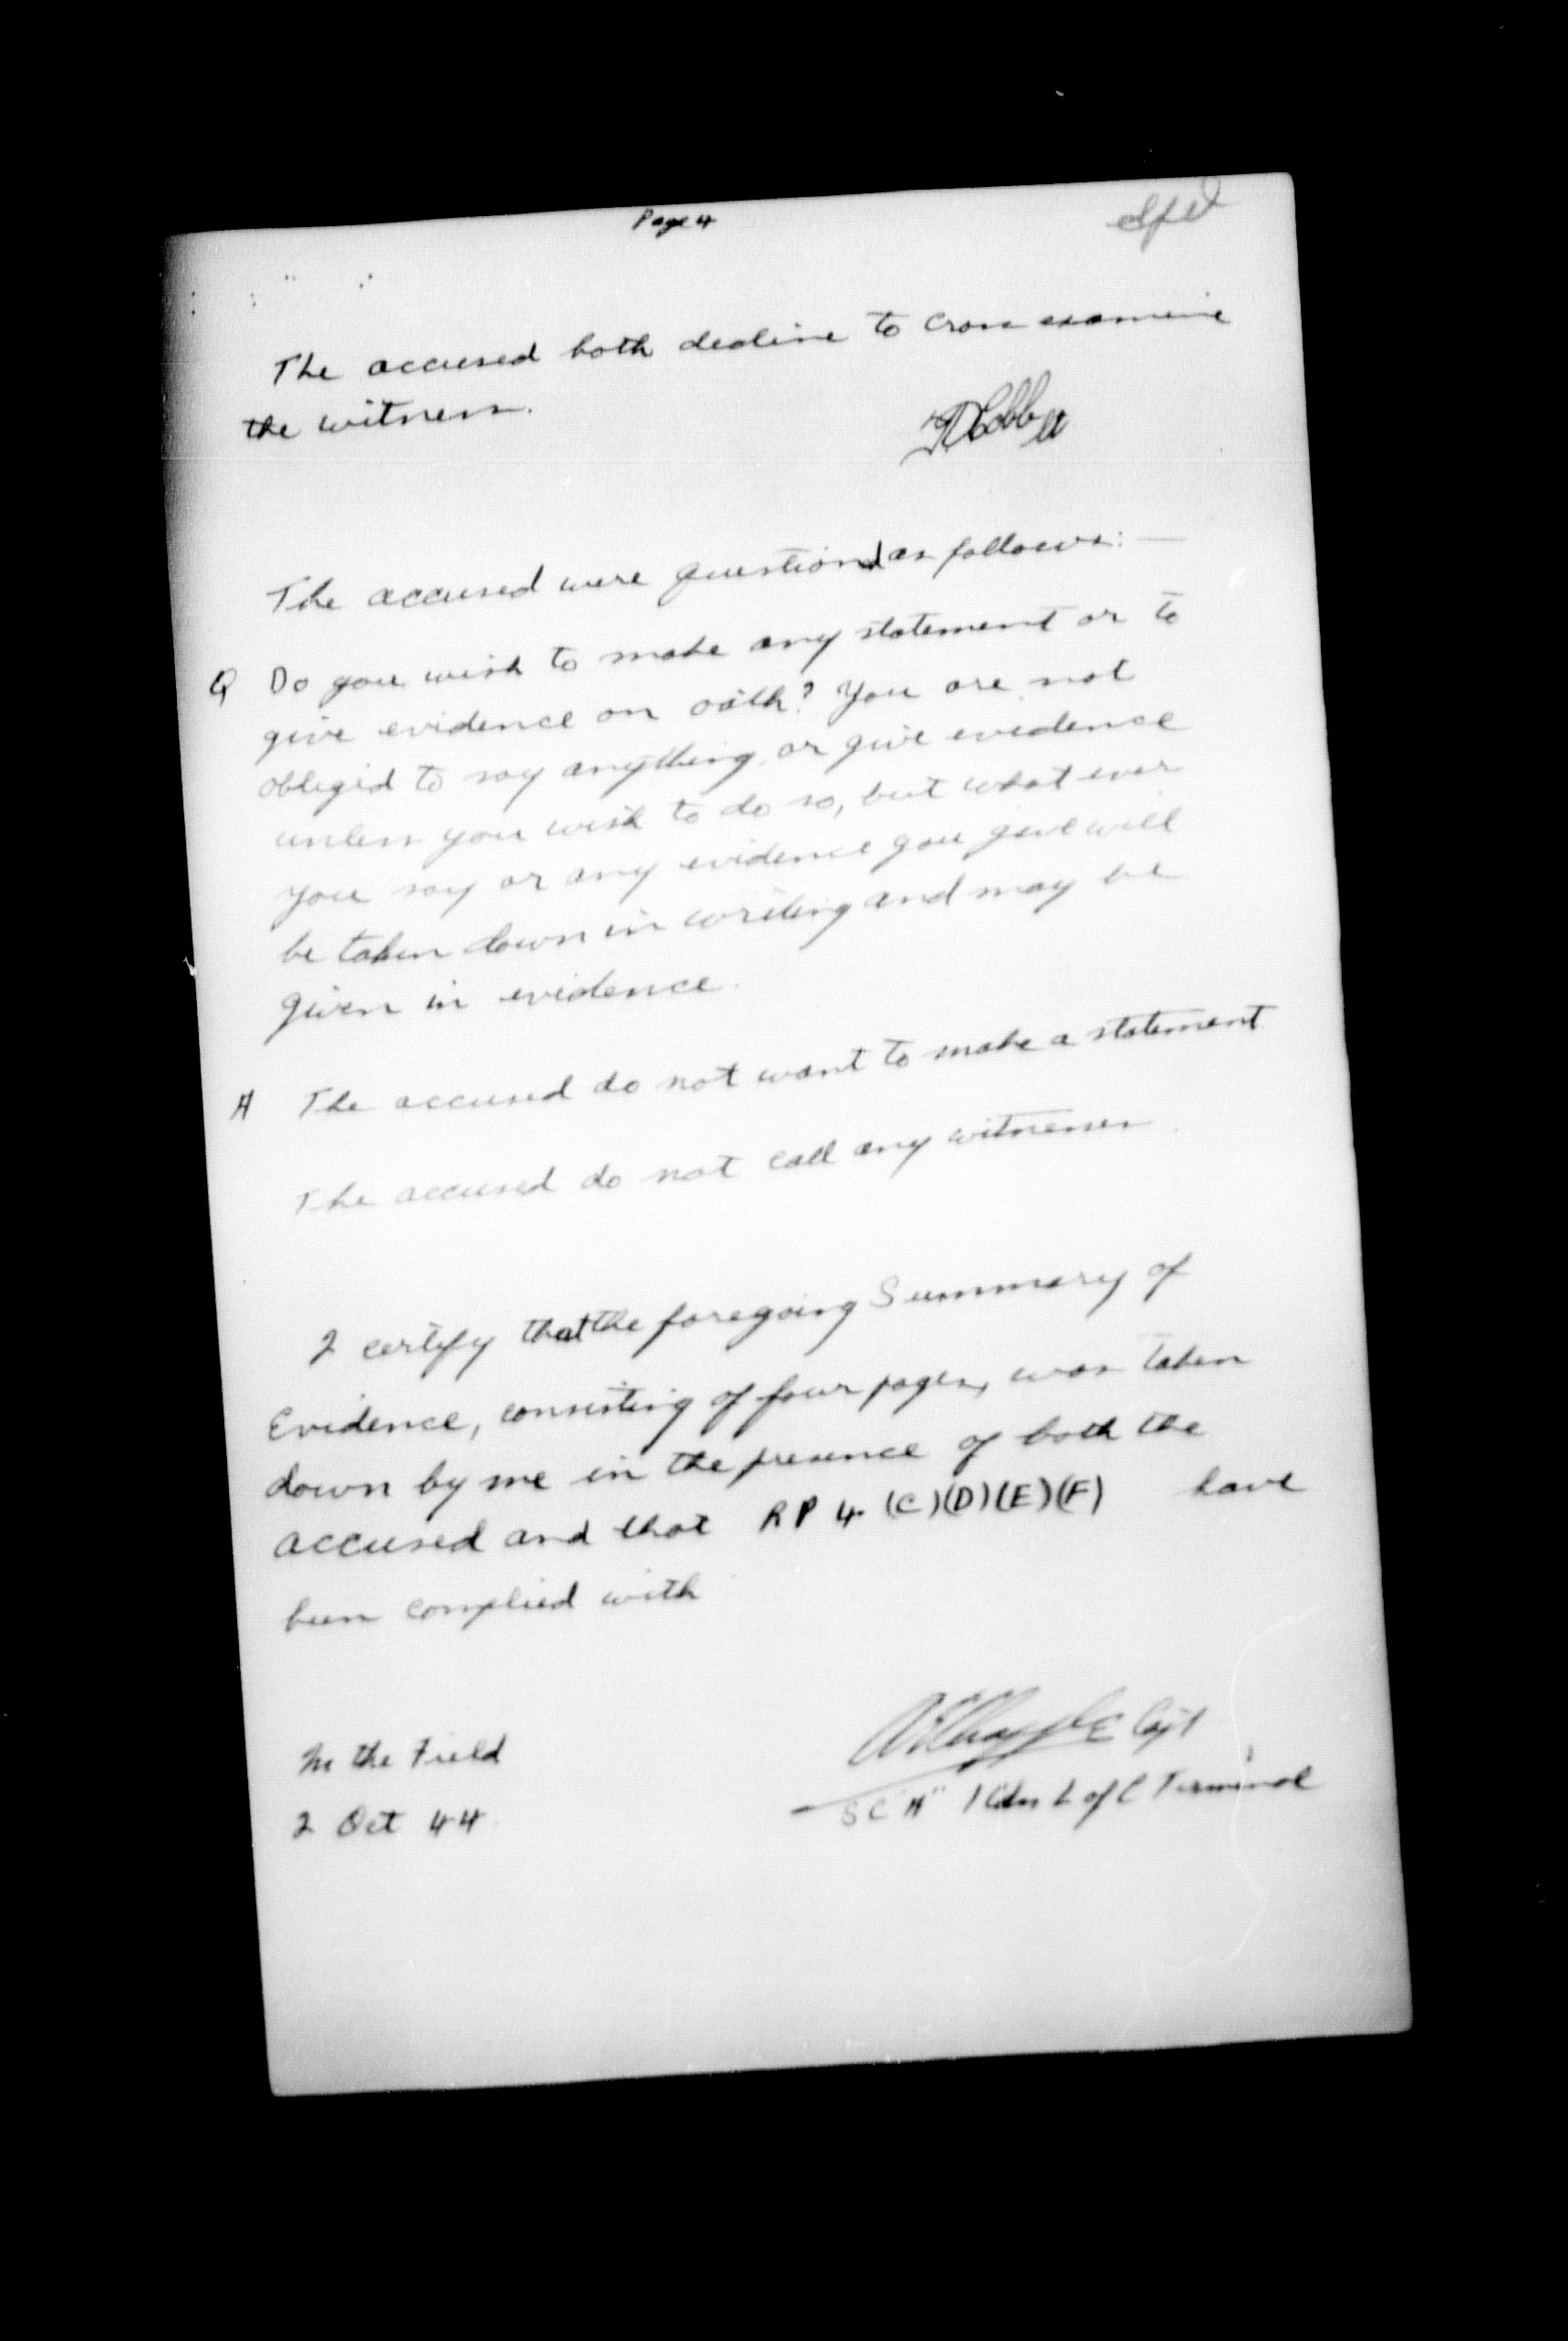 Page 4
The accused both decline to cross examine
the witness.
The accused were questiond as follows: —
Q Do you wish to make any statement or to
give evidence on oath? You are not
obliged to say anything or give evidence
unless you wish to do so, but what ever
you say or any evidence you give will
be taken down in writing and may be
given in evidence.
A The accused do not want to make a statement
The accused do not call any witnesses
I certify that the foregoing Summary of
Evidence, consisting of four pages, was taken
down by me in the presence of both the
accused and that RP 4 (C)(D)(E)(F) have
been complied with
Capt
In the Field
S C "A" 1 Cdn L of C Terminal
2 Oct 44